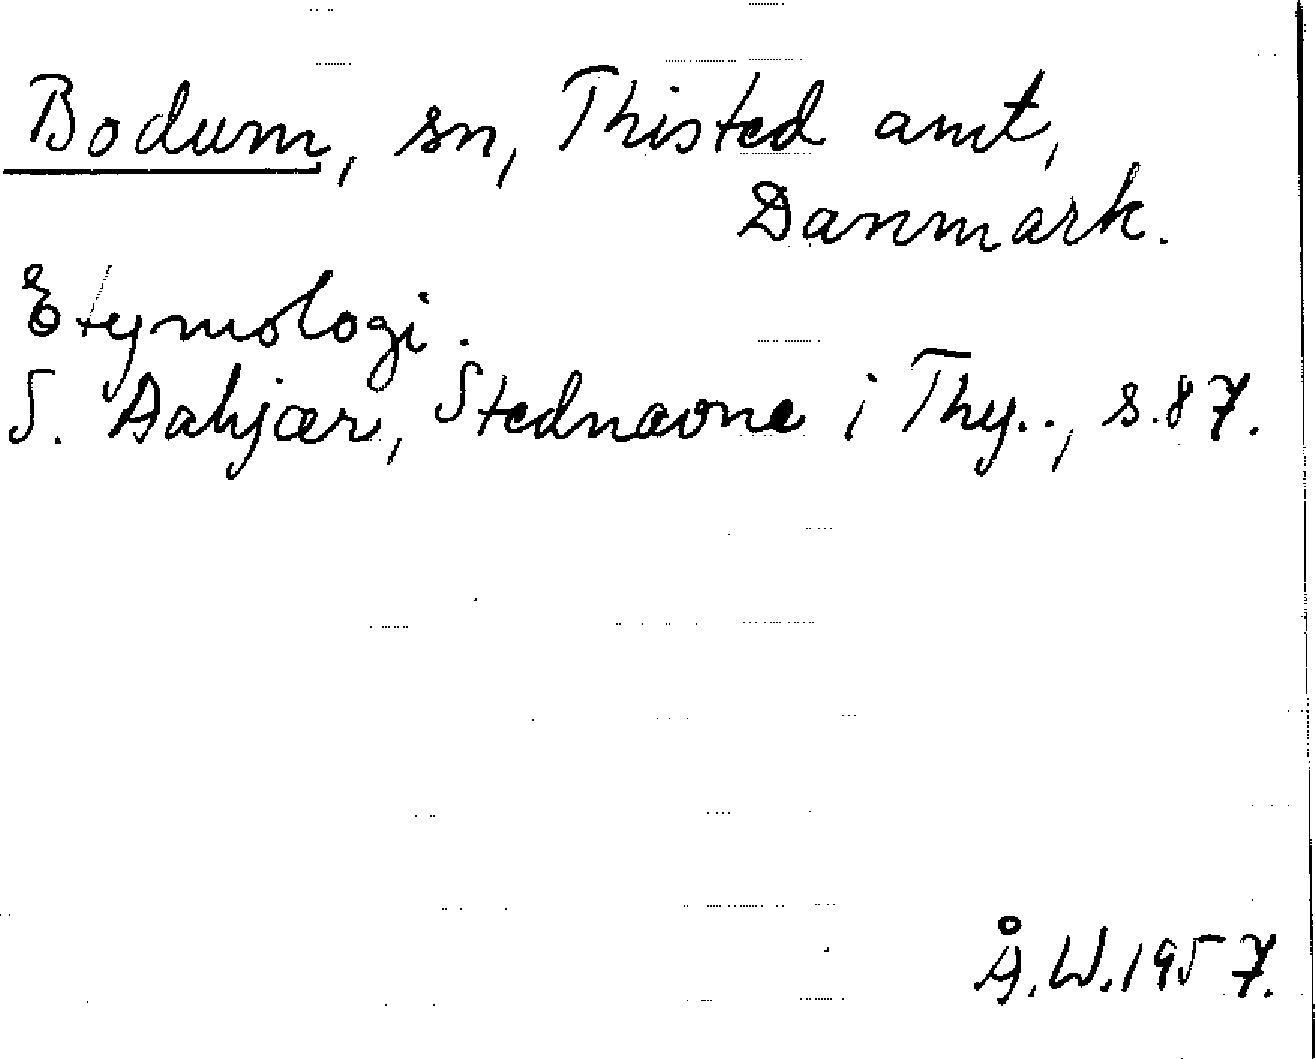 Bodum, sn, Thisted amt,
Danmark.
Etymologi.
S. Aakjær, Stednavne i Thy.., s.87.
Å.W.1957.